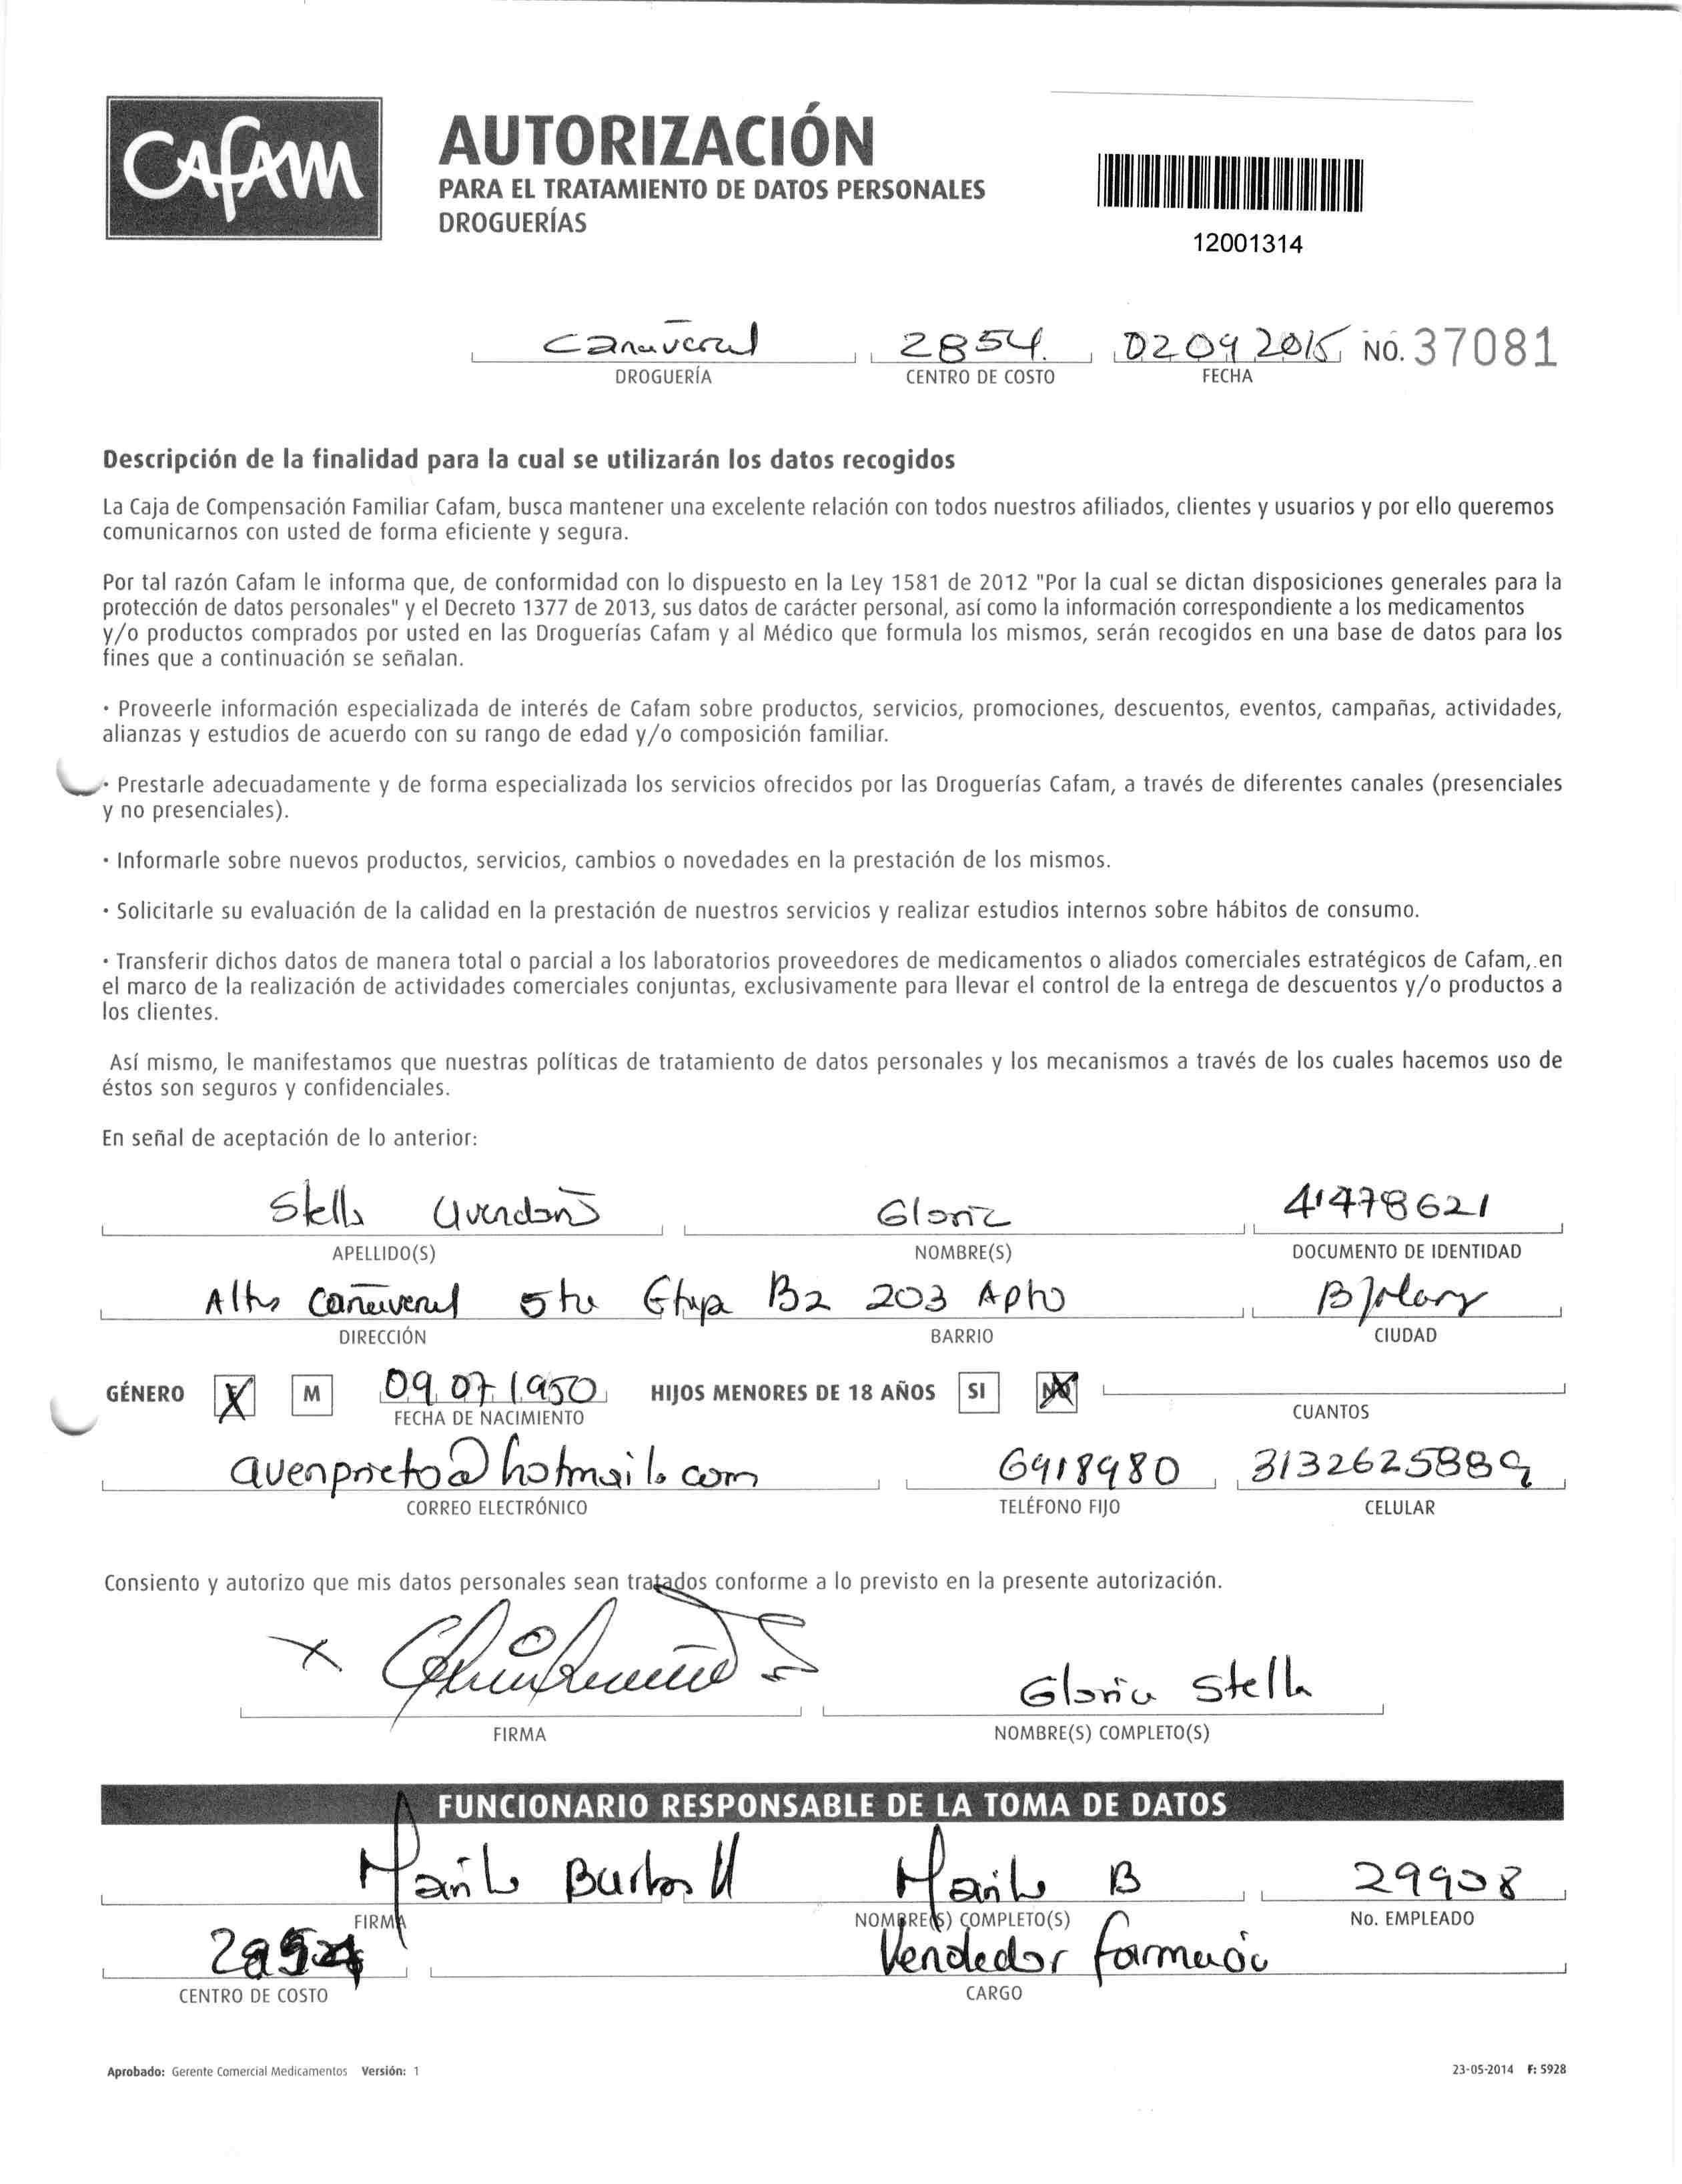 CAFAM
AUTORIZACIÓN
PARA EL TRATAMIENTO DE DATOS PERSONALES
DROGUERÍAS
12001314
Cañaveral 2854. 02 09 2015 NO. 37081
DROGUERÍA CENTRO DE COSTO FECHA
Descripción de la finalidad para la cual se utilizarán los datos recogidos
La Caja de Compensación Familiar Cafam, busca mantener una excelente relación con todos nuestros afiliados, clientes y usuarios y por ello queremos
comunicarnos con usted de forma eficiente y segura.
Por tal razón Cafam le informa que, de conformidad con lo dispuesto en la Ley 1581 de 2012 "Por la cual se dictan disposiciones generales para la
protección de datos personales" y el Decreto 1377 de 2013, sus datos de carácter personal, así como la información correspondiente a los medicamentos
y/o productos comprados por usted en las Droguerías Cafam y al Médico que formula los mismos, serán recogidos en una base de datos para los
fines que a continuación se señalan.
· Proveerle información especializada de interés de Cafam sobre productos, servicios, promociones, descuentos, eventos, campañas, actividades,
alianzas y estudios de acuerdo con su rango de edad y/o composición familiar.
· Prestarle adecuadamente y de forma especializada los servicios ofrecidos por las Droguerías Cafam, a través de diferentes canales (presenciales
y no presenciales).
· Informarle sobre nuevos productos, servicios, cambios o novedades en la prestación de los mismos.
· Solicitarle su evaluación de la calidad en la prestación de nuestros servicios y realizar estudios internos sobre hábitos de consumo.
· Transferir dichos datos de manera total o parcial a los laboratorios proveedores de medicamentos o aliados comerciales estratégicos de Cafam, en
el marco de la realización de actividades comerciales conjuntas, exclusivamente para llevar el control de la entrega de descuentos y/o productos a
los clientes.
Así mismo, le manifestamos que nuestras políticas de tratamiento de datos personales y los mecanismos a través de los cuales hacemos uso de
éstos son seguros y confidenciales.
En señal de aceptación de lo anterior:
Stella Avendaño Gloria 41478621
APELLIDO(S) NOMBRE(S) DOCUMENTO DE IDENTIDAD
Altos Cañaveral 5ta Etapa B2 203 Apto
DIRECCIÓN BARRIO CIUDAD
GÉNERO X M 09 07 1950 HIJOS MENORES DE 18 AÑOS SI NO
FECHA DE NACIMIENTO CUANTOS
avenprieto@hotmail.com 6918980 3132625889
CORREO ELECTRÓNICO TELÉFONO FIJO CELULAR
Consiento y autorizo que mis datos personales sean tratados conforme a lo previsto en la presente autorización.
X Gloria Stella
FIRMA NOMBRE(S) COMPLETO(S)
FUNCIONARIO RESPONSABLE DE LA TOMA DE DATOS
B 29908
FIRMA NOMBRE(S) COMPLETO(S) No. EMPLEADO
Vendedor farmacia
CENTRO DE COSTO CARGO
Aprobado: Gerente Comercial Medicamentos Versión: 1 23-05-2014 F: 5928